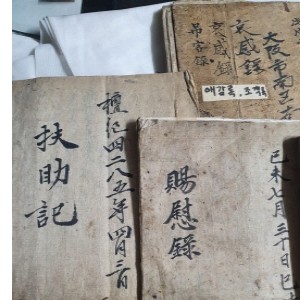 大阪市南
哀感錄
哀感錄
弔客錄
애감록.조객
檀紀四二八五年四月三日
扶助記
己未七月三十日
賜慰錄